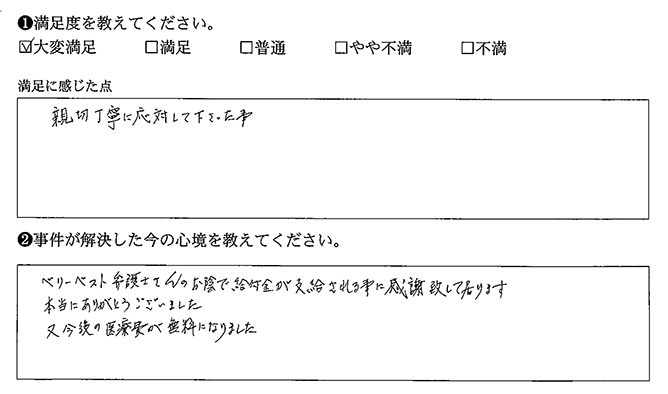 ❶満足度を教えてください。
☑大変満足 □満足 □普通 □やや不満 □不満
満足に感じた点
親切丁寧に応対して下さった事
❷事件が解決した今の心境を教えてください。
ベリーベスト弁護士さんのお陰で給付金が支給される事に感謝致して居ります
本当にありがとうございました
又今後の医療費が無料になりました